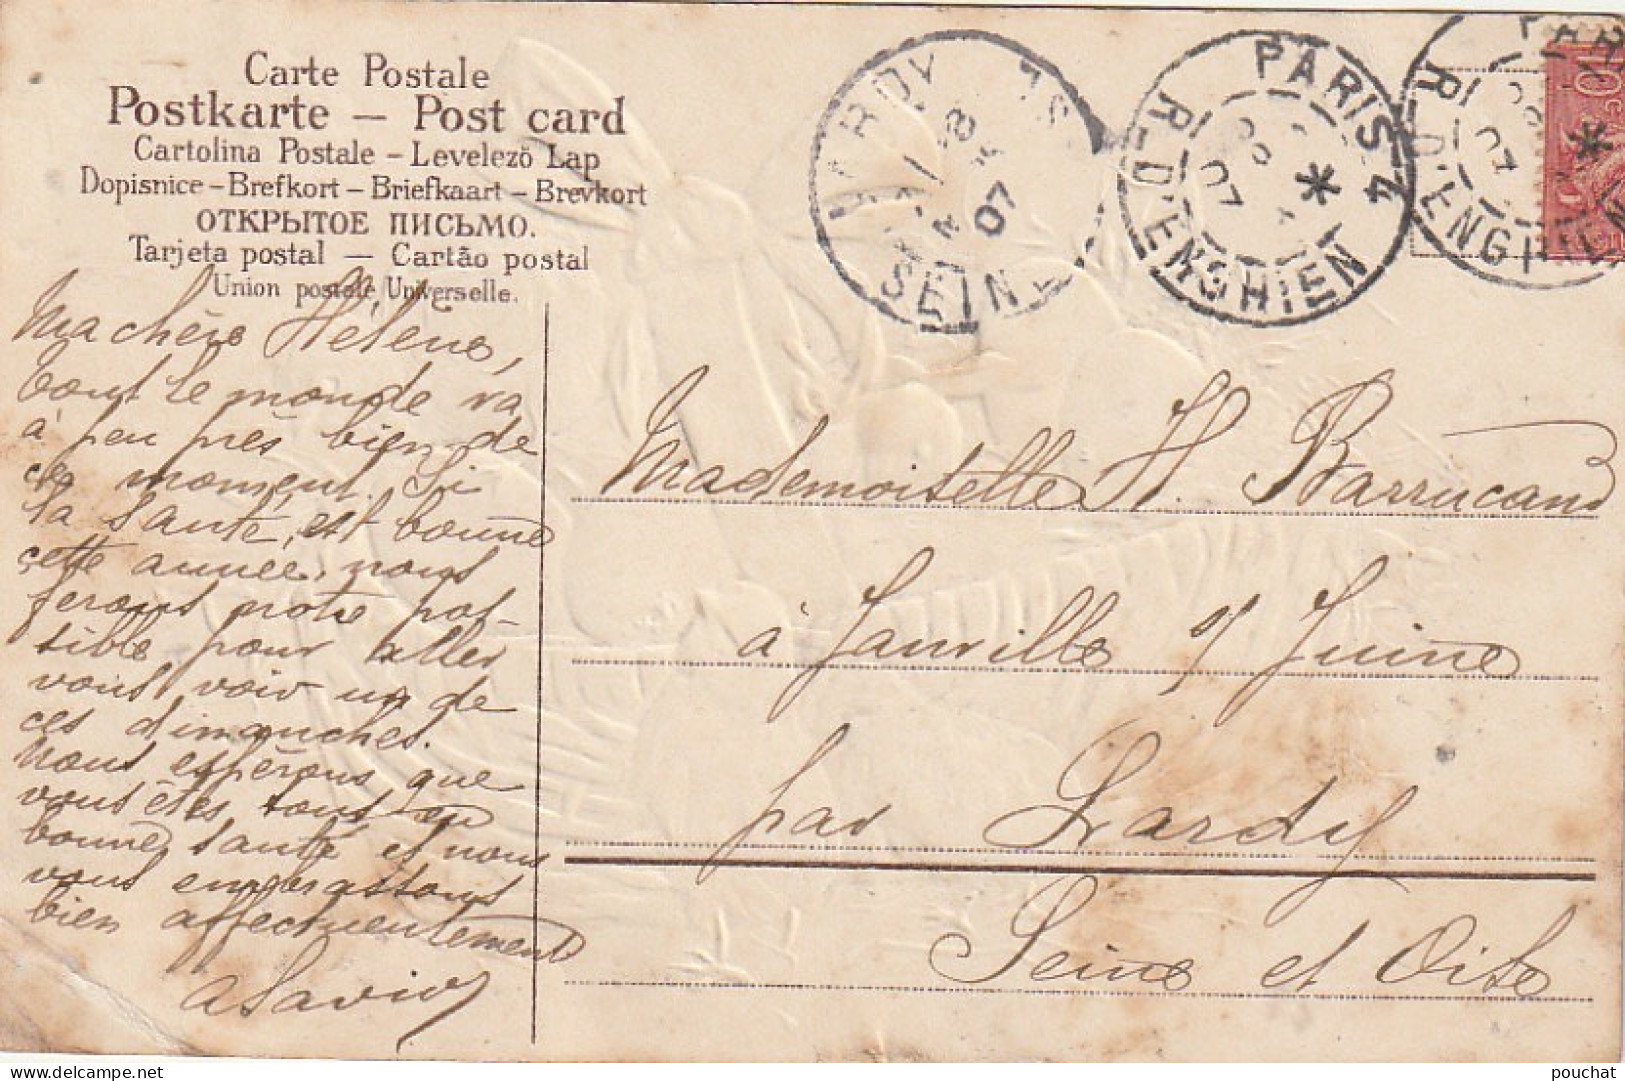 Carte Postale
Postkarte — Post card
Cartolina Postale – Levelező Lap
Dopisnice – Brefkort – Briefkaart – Brevkort
ОТКРЫТОЕ ПИСЬМО.
Tarjeta postal — Cartão postal
Union postale Universelle.
Ma chère Hélène,
tout le monde va
à peu près bien de
ce moment. Si
la santé, est bonne
cette année, nous
ferons notre pos-
sible pour aller
vous voir un de
ces dimanches.
Nous espérons que
vous êtes tous en
bonne santé et nous
vous embrassons
bien affectueusement
LARDY
SEINE
07
PARIS 4
R-D'ENGHIEN
07
PARIS
R-D'ENGHIEN
07
Mademoiselle H. Barrucand
à Janville s/ Juine
par Lardy
Seine et Oise
pouchat